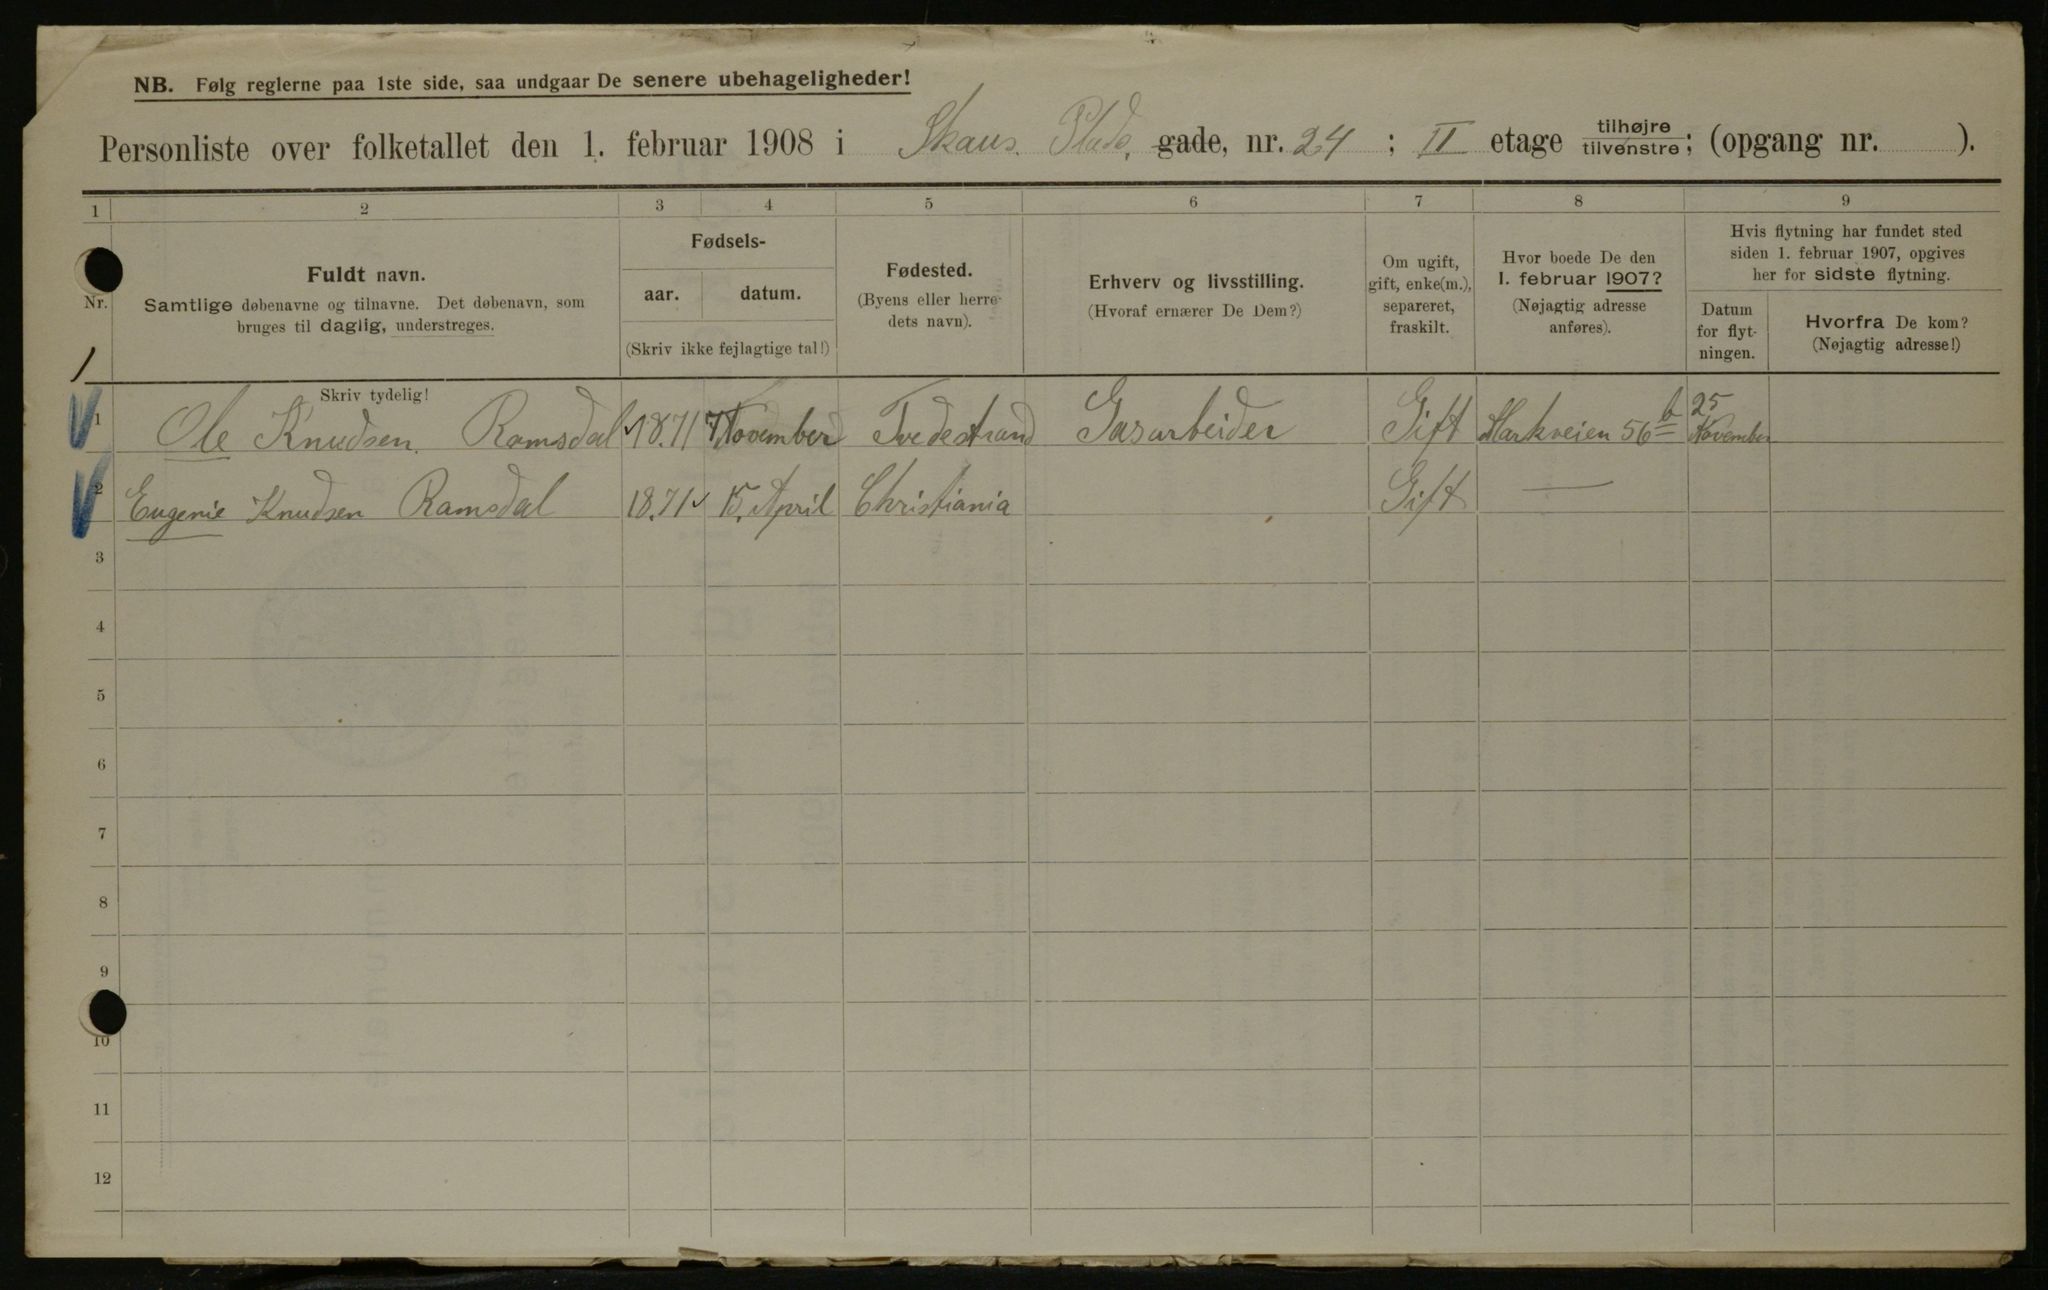 NB. Følg reglerne paa 1ste side, saa undgaar De senere ubehageligheder!
Personliste over folketallet den 1. februar 1908 i Skaus. Plads, gade, nr. 24 ; II etage tilhøjre tilvenstre; (opgang nr. ).
1 2 3 4 5 6 7 8 9
Nr.
Fuldt navn.
Samtlige døbenavne og tilnavne. Det døbenavn, som
bruges til daglig, understreges.
Skriv tydelig!
Fødsels-
aar. datum.
(Skriv ikke fejlagtige tal!)
Fødested.
(Byens eller herre-
dets navn).
Erhverv og livsstilling.
(Hvoraf ernærer De Dem?)
Om ugift,
gift, enke(m.),
separeret,
fraskilt.
Hvor boede De den
1. februar 1907?
(Nøjagtig adresse
anføres).
Hvis flytning har fundet sted
siden 1. februar 1907, opgives
her for sidste flytning.
Datum
for flyt-
ningen.
Hvorfra De kom?
(Nøjagtig adresse!)
1
1 Ole Knudsen. Ramsdal 18.71 7 November Tvedestrand Gasarbeider Gift Markveien 56 b 25 November
2 Eugenie Knudsen Ramsdal 18.71 15. April Christiania Gift —
3
4
5
6
7
8
9
10
11
12